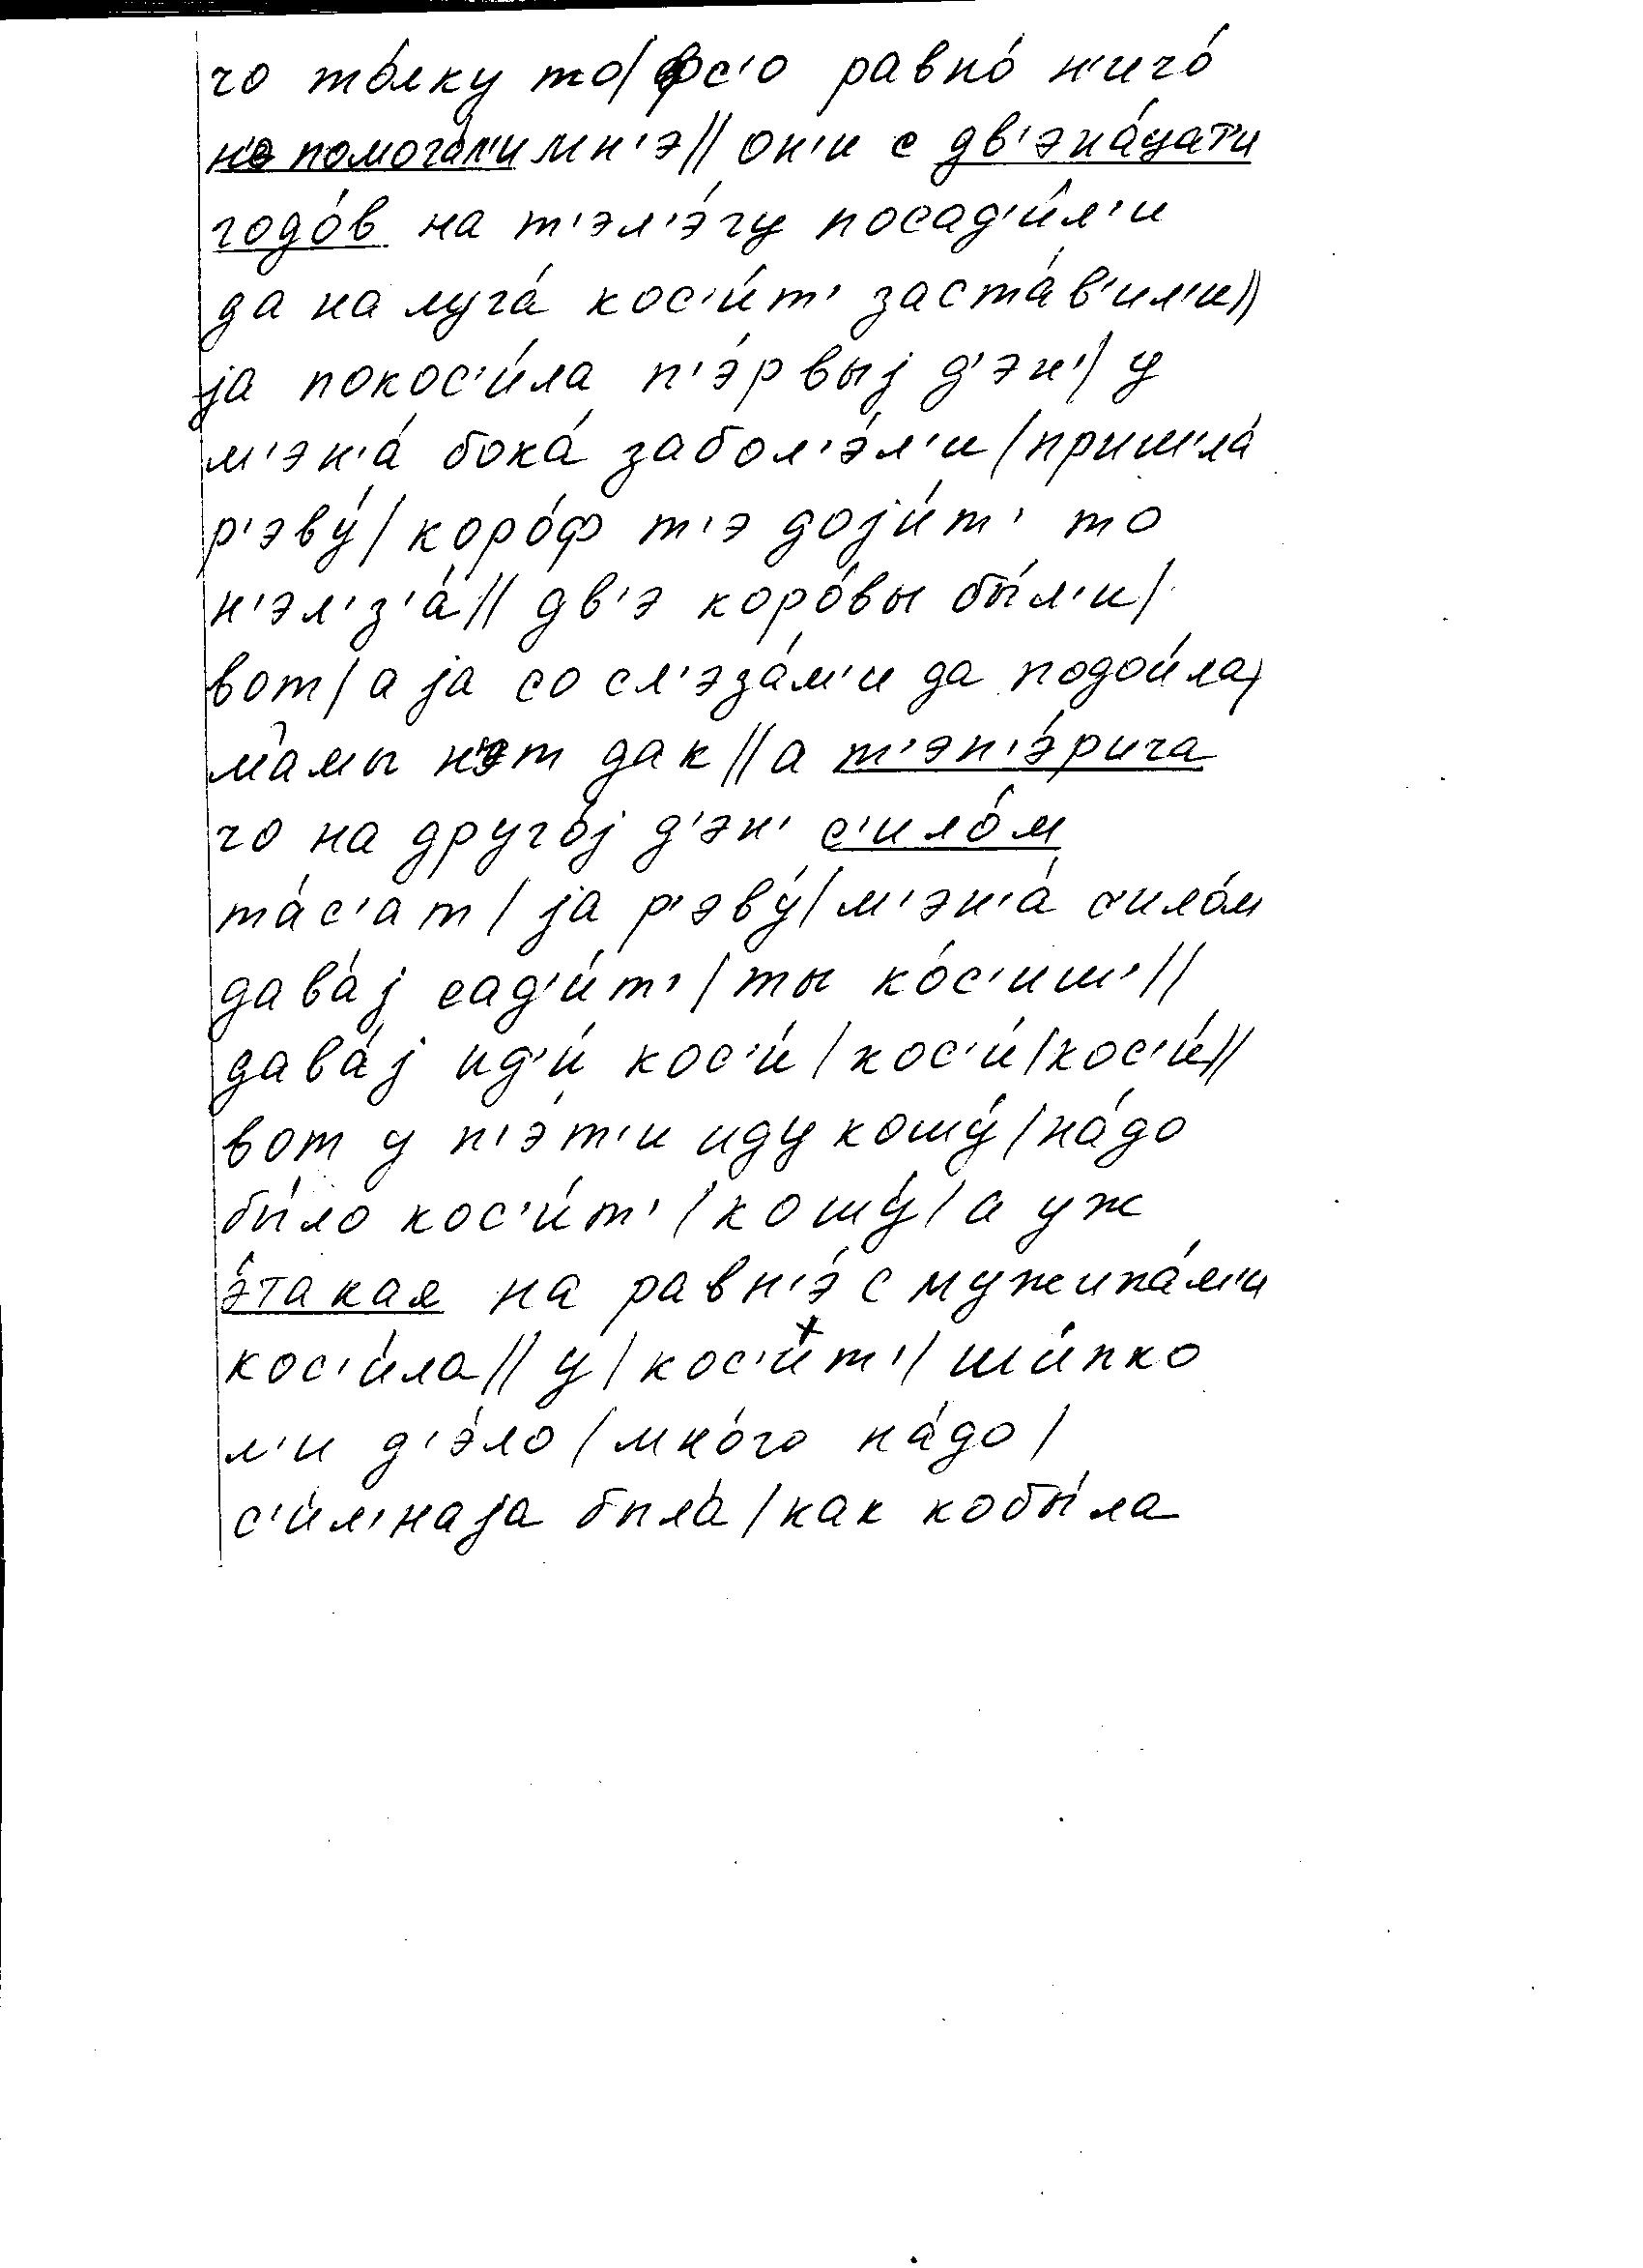 чо то́лку то/ фс'о равно́ н'ичо́
н'э помога́л'и мн'э// он'и с дв'эна́цат'и
годо́в на т'эл'э́гу посад'и́л'и
да на луга́ кос'и́т' заста́в'ил'и//
jа покос'и́ла п'э́рвыj д'эн'/ у
м'эн'а́ бока́ забол'э́л'и/ пришла́
р'эву́/ коро́ф т'э доjи́т' то
н'эл'з'а́// дв'э коро́вы бы́л'и/
вот/ а jа со сл'эза́м'и да подои́ла/
ма́мы н'эт дак// а т'эп'э́рича
чо на друго́j д'эн' с'ило́м
та́с'ат/ jа р'эву́/ м'эн'а́ с'ило́м
дава́j сад'и́т'/ ты ко́с'иш'//
дава́j ид'и́ кос'и́/ кос'и́/ кос'и́//
вот у п'э́т'и иду кошу́/ на́до
бы́ло кос'и́т'/ кошу́/ а уж
э́такая на равн'э́ с мужика́м'и
кос'и́ла// у/ кос'и́т'/ ши́пко
л'и д'э́ло/ мно́го на́до/
с'и́л'наjа была́/ как кобы́ла